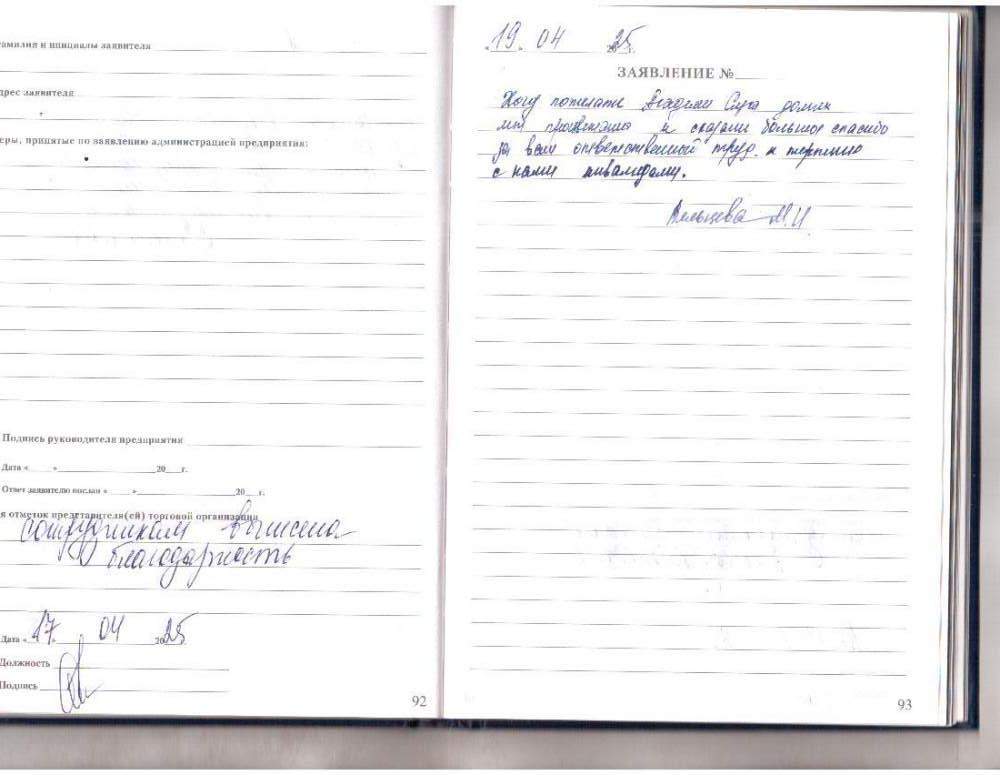 амилия и инициалы заявителя
дрес заявителя
еры, принятые по заявлению администрацией предприятия:
Подпись руководителя предприятия
Дата « » 20 г.
Ответ заявителю послан « » 20 г.
я отметок представителя(ей) торговой организации
сотрудникам вынесена
благодарность
Дата « 17 » 04 2025
Должность
Подпись
92
« 19 » 04 2025 г.
ЗАЯВЛЕНИЕ №
Хочу пожелать
и сказать большое спасибо
за ваш ответственный труд и терпение
с нами инвалидами.
М.И.
93